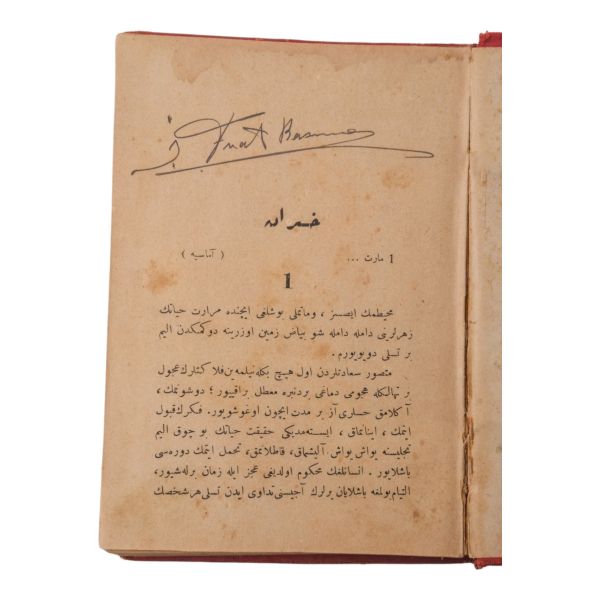 Fuat
خسران
1 مارت ... ( آماسیه )
1
محیطمك ایصسز ، وماتملی بوشلغی ایچنده مرارت حیاتك
زهرلرینی دامله دامله شو بیاض زمین اوزرینه دوكمكدن الیم
بر تسلی دویویورم .
متصور سعادتلردن اول هیچ بكله نیلمه ین فلاكتلرك عجول
بر تهالكله هجومی دماغی بردنبره معطل براقییور ؛ دوشونمك ،
آكلامق حسلری آز بر مدت ایچون اوغوشویور . فكرك قبول
ایتمك ، اینانماق ، ایسته مدیكی حقیقت حیاتك بو چوق الیم
تجلیسنه یواش یواش آلیشماق ، قاطلانمق ، تحمل ایتمك دوره سی
باشلایور . انسانلغك محكوم اولدیغی عجز ایله زمان برله شیور ،
التیام بولمغه باشلایان یرلرك آجیسنی تداوی ایدن تسلی هر شخصك